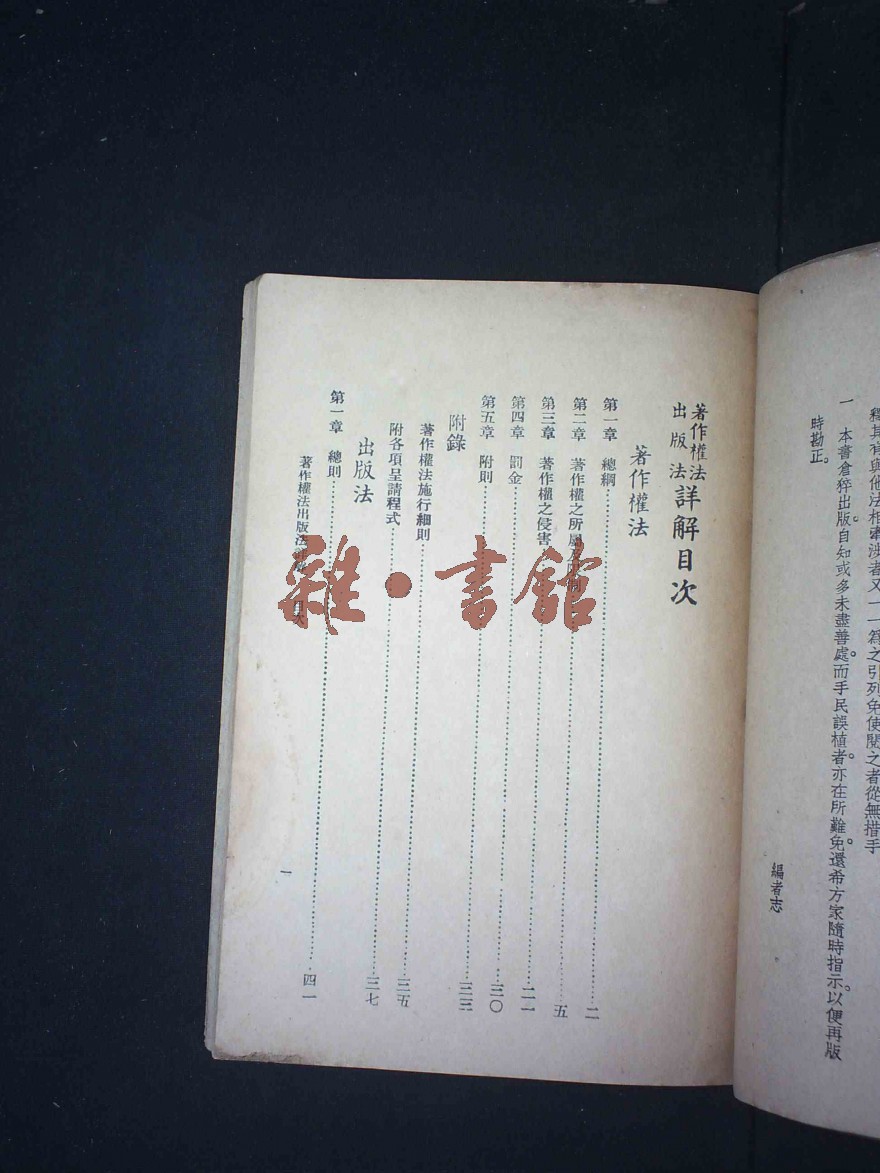 釋其有與他法相牽涉者又一一為之引列免使閱之者從無措手
一 本書倉猝出版。自知或多未盡善處。而手民誤植者。亦在所難免。還希方家隨時指示。以便再版
時勘正。
編者志
著作權法
出版法 詳解目次
著作權法
第一章 總綱……二
第二章 著作權之所屬及限制……五
第三章 著作權之侵害……二一
第四章 罰金……三〇
第五章 附則……三三
附錄
著作權法施行細則……三五
附各項呈請程式……三七
出版法
第一章 總則……四一
著作權法出版法詳解 目次
一
雜·書館